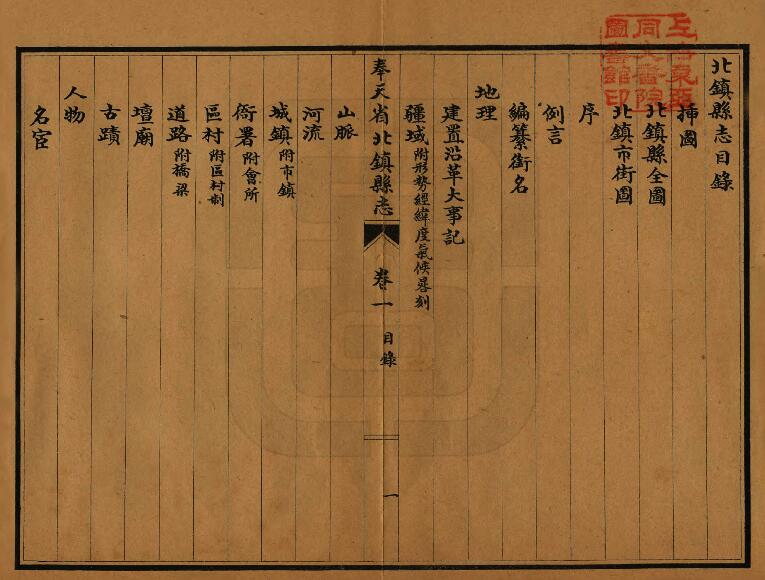 北鎮縣志目錄
插圖
北鎮縣全圖
北鎮市街圖
序
例言
編纂銜名
地理
建置沿革大事記
疆域附形勢經緯度氣候晷刻
奉天省北鎮縣志 卷一 目錄 一
山脈
河流
城鎮附市鎮
衙署附會所
區村附區村制
道路附橋梁
壇廟
古蹟
人物
名宦
上海東亞
同文書院
圖書館印